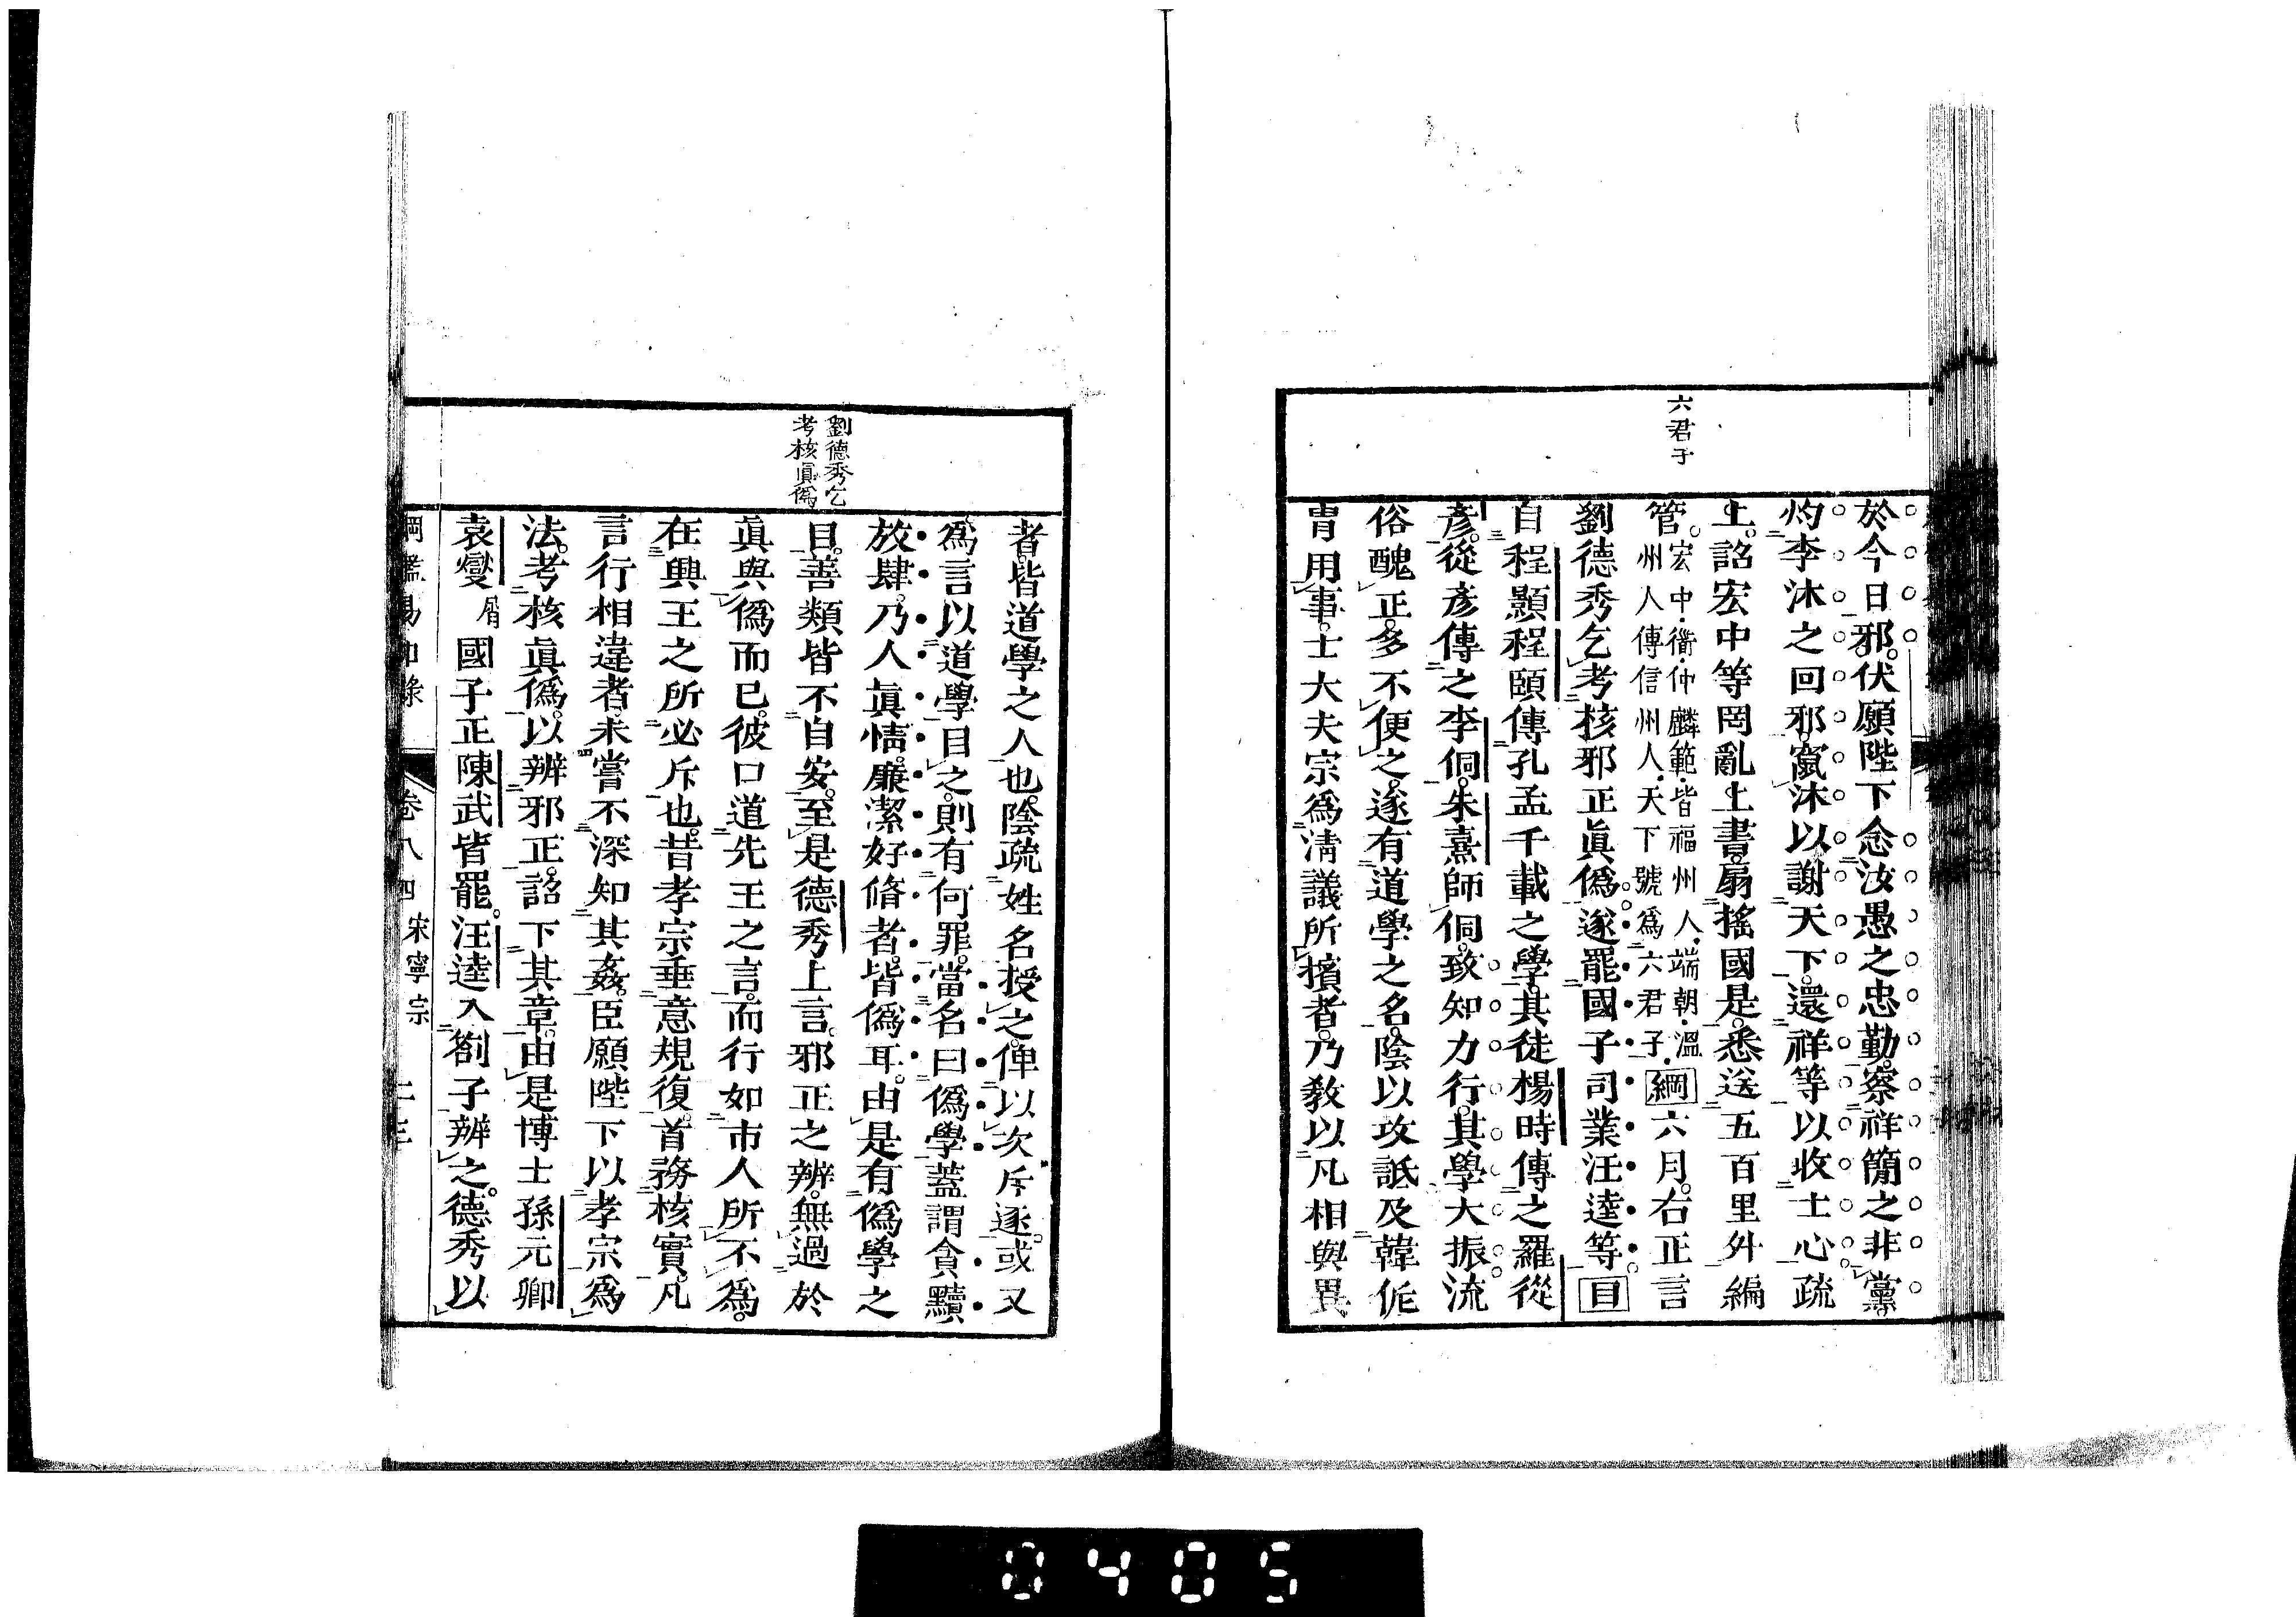 六君子
於今日邪。伏願陛下念汝愚之忠勤。察祥簡之非黨。
灼李沐之回邪。竄沐以謝天下。還祥等以收士心疏
上。詔宏中等罔亂上書。扇搖國是。悉送五百里外編
管。宏中・衜・仲麟・範・皆福州人・端朝・溫
州人傳信州人・天下號爲六君子・綱六月。右正言
劉德秀乞考核邪正眞僞。遂罷國子司業汪逵等。目
自程顥程頤傳孔孟千載之學。其徒楊時傳之羅從
彥。從彥傳之李侗。朱熹師侗。致知力行。其學大振。流
俗醜正。多不便之。遂有道學之名。陰以攻詆及韓侂
冑用事。士大夫宗爲淸議所擯者。乃敎以凡相與異
者。皆道學之人也。陰疏姓名授之。俾以次斥逐。或又
爲言以道學目之。則有何罪。當名曰僞學蓋謂貪黷
放肆。乃人眞情。廉潔好脩者。皆僞耳。由是有僞學之
目。善類皆不自安。至是德秀上言。邪正之辨。無過於
眞與僞而已。彼口道先王之言。而行如市人所不爲。
在興王之所必斥也。昔孝宗垂意規復。首務核實。凡
言行相違者。未嘗不深知其姦。臣願陛下以孝宗爲
法。考核眞僞。以辨邪正。詔下其章。由是博士孫元卿
袁燮屑國子正陳武皆罷。汪逵入劄子辨之。德秀以
劉德秀乞
考核眞僞
綱鑑易知錄 卷八四 宋寧宗